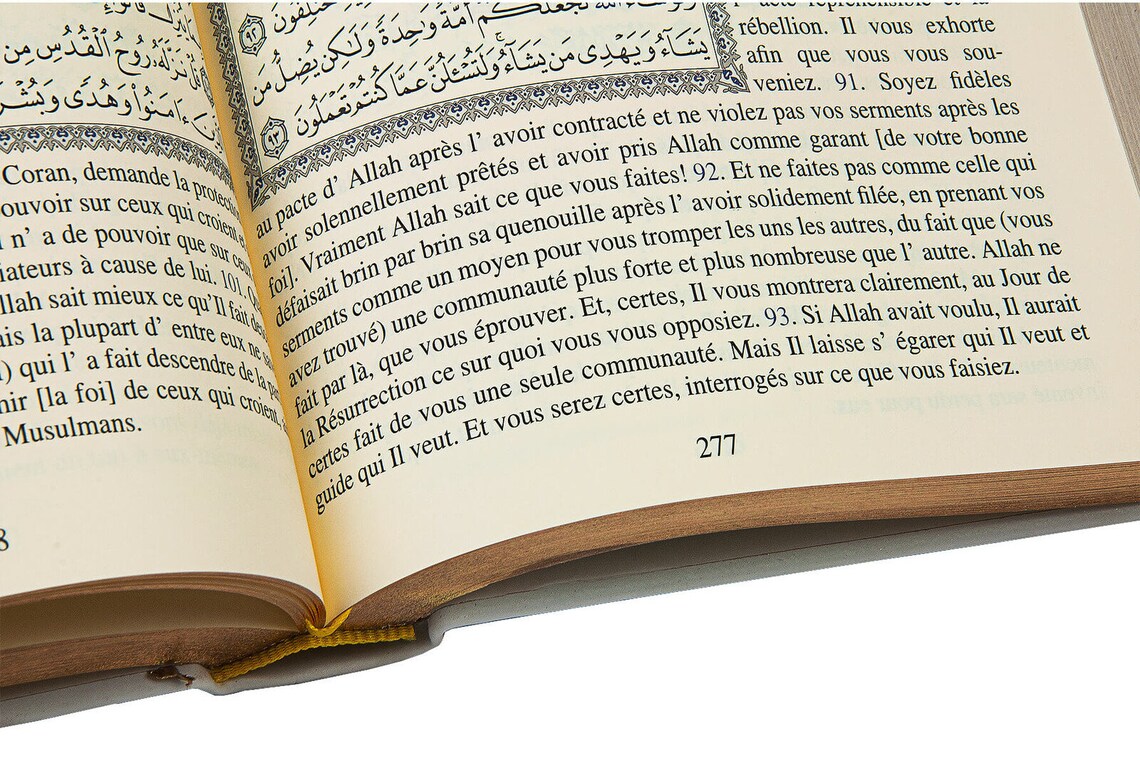 تختلفون ٩٢
الله لجعلكم أمة وحدة ولكن يضل من
يشاء ويهدي من يشاء ولتسئلن عما كنتم تعملون ٩٣
rébellion. Il vous exhorte
afin que vous vous sou-
veniez. 91. Soyez fidèles
au pacte d’ Allah après l’ avoir contracté et ne violez pas vos serments après les
avoir solennellement prêtés et avoir pris Allah comme garant [de votre bonne
foi]. Vraiment Allah sait ce que vous faites! 92. Et ne faites pas comme celle qui
défaisait brin par brin sa quenouille après l’ avoir solidement filée, en prenant vos
serments comme un moyen pour vous tromper les uns les autres, du fait que (vous
avez trouvé) une communauté plus forte et plus nombreuse que l’ autre. Allah ne
fait par là, que vous éprouver. Et, certes, Il vous montrera clairement, au Jour de
la Résurrection ce sur quoi vous vous opposiez. 93. Si Allah avait voulu, Il aurait
certes fait de vous une seule communauté. Mais Il laisse s’ égarer qui Il veut et
guide qui Il veut. Et vous serez certes, interrogés sur ce que vous faisiez.
277
نزله روح القدس من
ءامنوا وهدى
Coran, demande la
ouvoir sur ceux qui croient et
n’ a de pouvoir que sur ceux
iateurs à cause de lui. 101.
llah sait mieux ce qu’Il fait
is la plupart d’ entre eux ne
) qui l’ a fait descendre de la
nir [la foi] de ceux qui croient,
Musulmans.
8